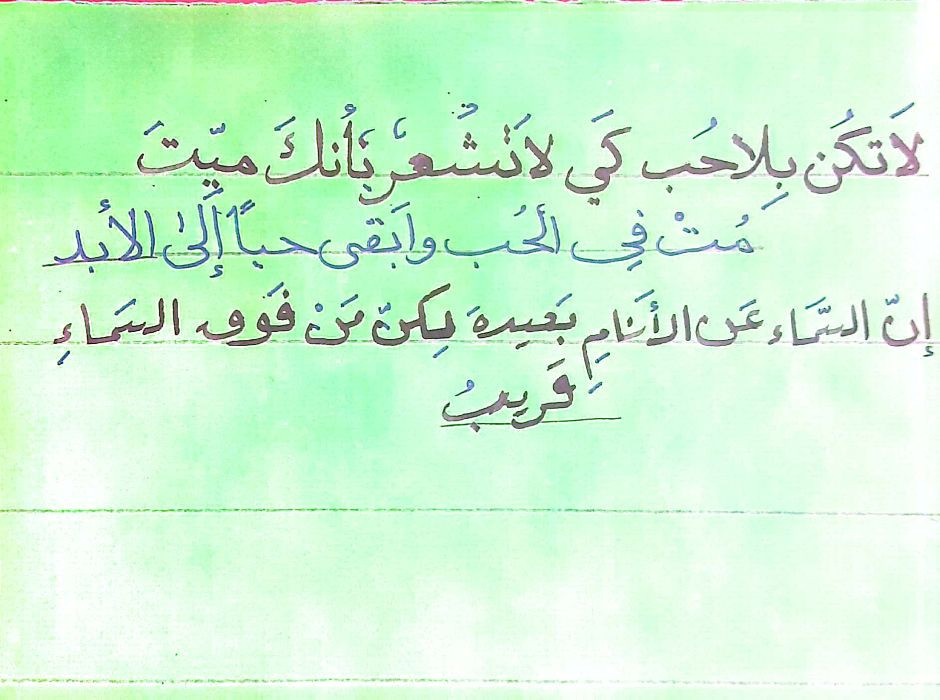 لَا تَكُن بِلاحُب كَي لا تَشُعرْ بَأنكَ ميّتَ
مُتْ في الحُب وابَقى حباً إلَىٰ الأبد
إنّ السَّماء عَن الأنَامِ بَعيدهَ لكنّ مَنْ فَوق السَماءِ
قَريبُ